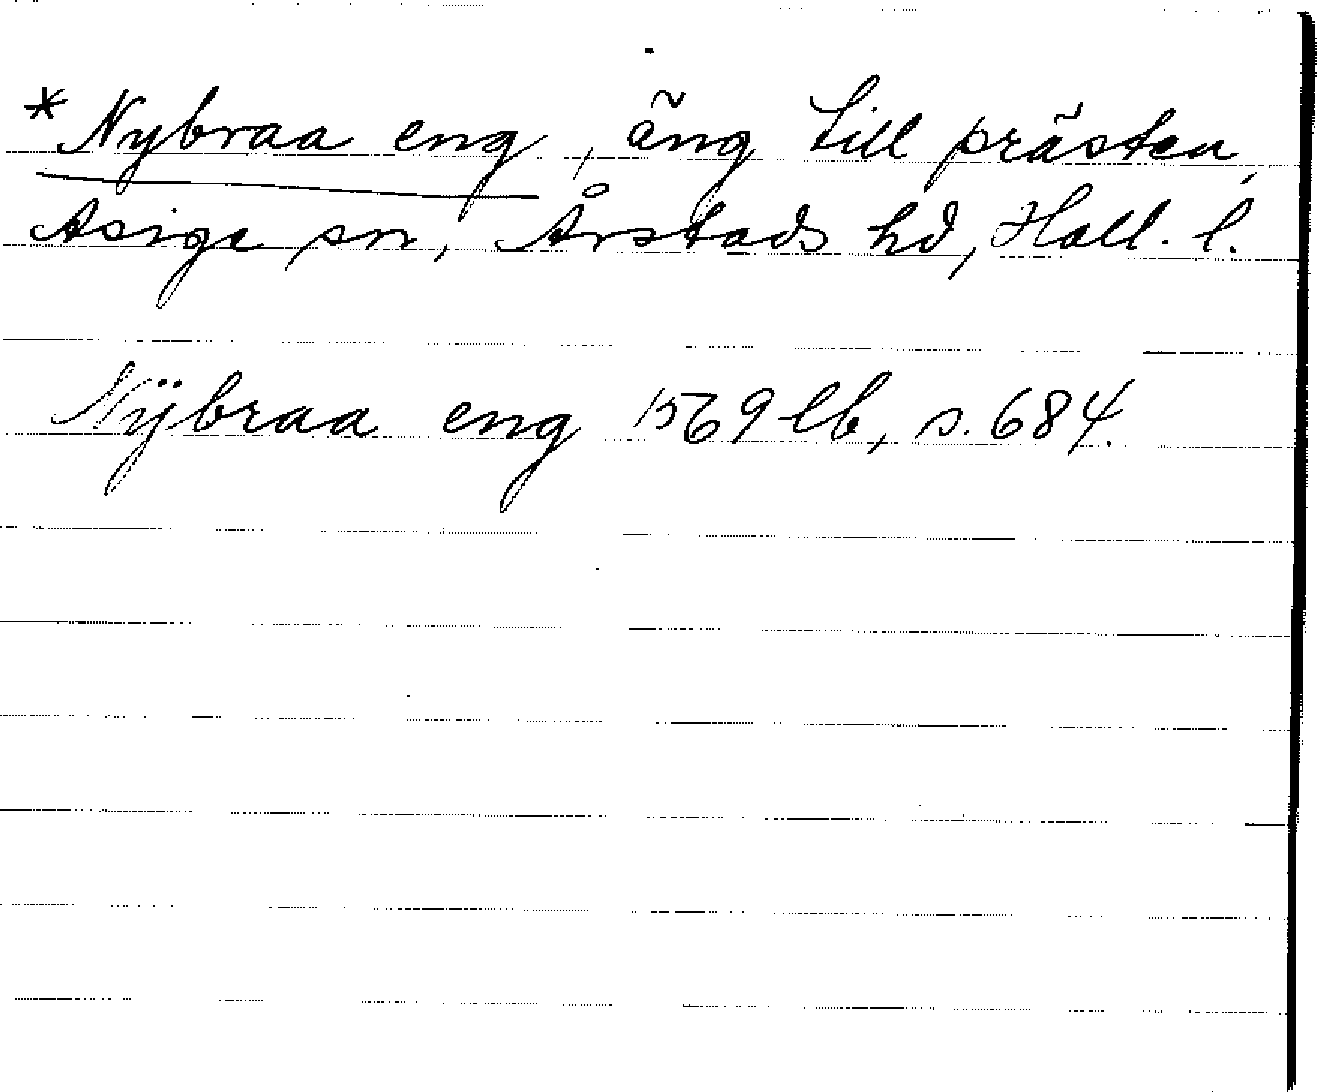 *Nybraa eng, äng till prästen,
Asige sn, Årstads hd, Hall. l.
Nÿbraa eng 1569 lb, s. 684.